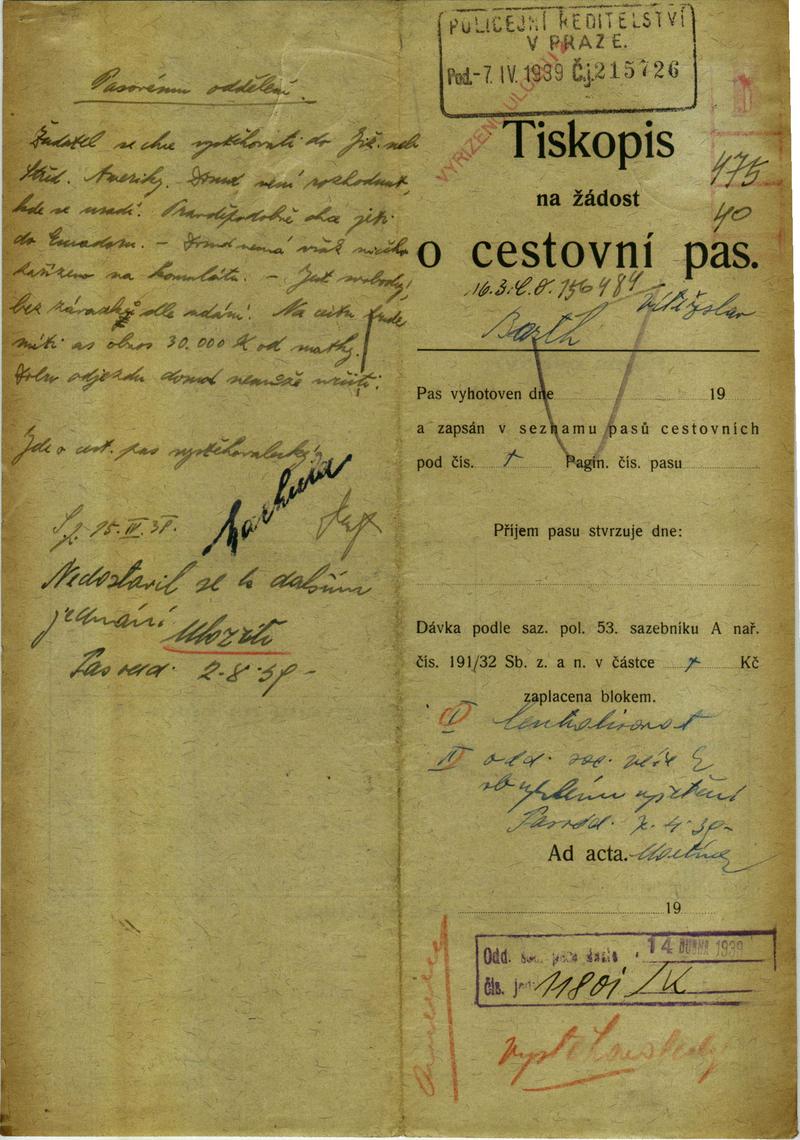 Pasovému oddělení.
Žadatel se chce vystěhovati do Již. neb
Střed. Ameriky. Dosud není rozhodnut,
kde se usadí. Pravděpodobně chce jeti
do Ecuadoru. – Dosud nemá však
zařízeno na konsulátu. – Jest svobodný,
bez závazků dle udání. Na cestu bude
míti as obnos 30.000 K od matky.
Dobu odjezdu dosud nemůže určiti.
Jde o cest. pas vystěhovalecký.
Nedostavil se k dalšímu
jednání
Uložiti
Pas odd. 2.8.39 –
POLICEJNÍ ŘEDITELSTVÍ
V PRAZE.
Pod. -7. IV. 1939 Č.j. 215726
VYŘÍZENO ULOŽITI
Tiskopis
na žádost
o cestovní pas.
475
40
Barth Vítězslav
Pas vyhotoven dne 19
a zapsán v seznamu pasů cestovních
pod čís. Pagin. čís. pasu
Příjem pasu stvrzuje dne:
Dávka podle saz. pol. 53. sazebníku A nař.
čís. 191/32 Sb. z. a n. v částce Kč
zaplacena blokem.
I
II odd. soc. péče
Pas odd. 7. 4. 39 –
Ad acta.
19
Odd. soc. péče 14 DUBNA 1939
čís. jedn. 11801/IX
Vystěhovalecký